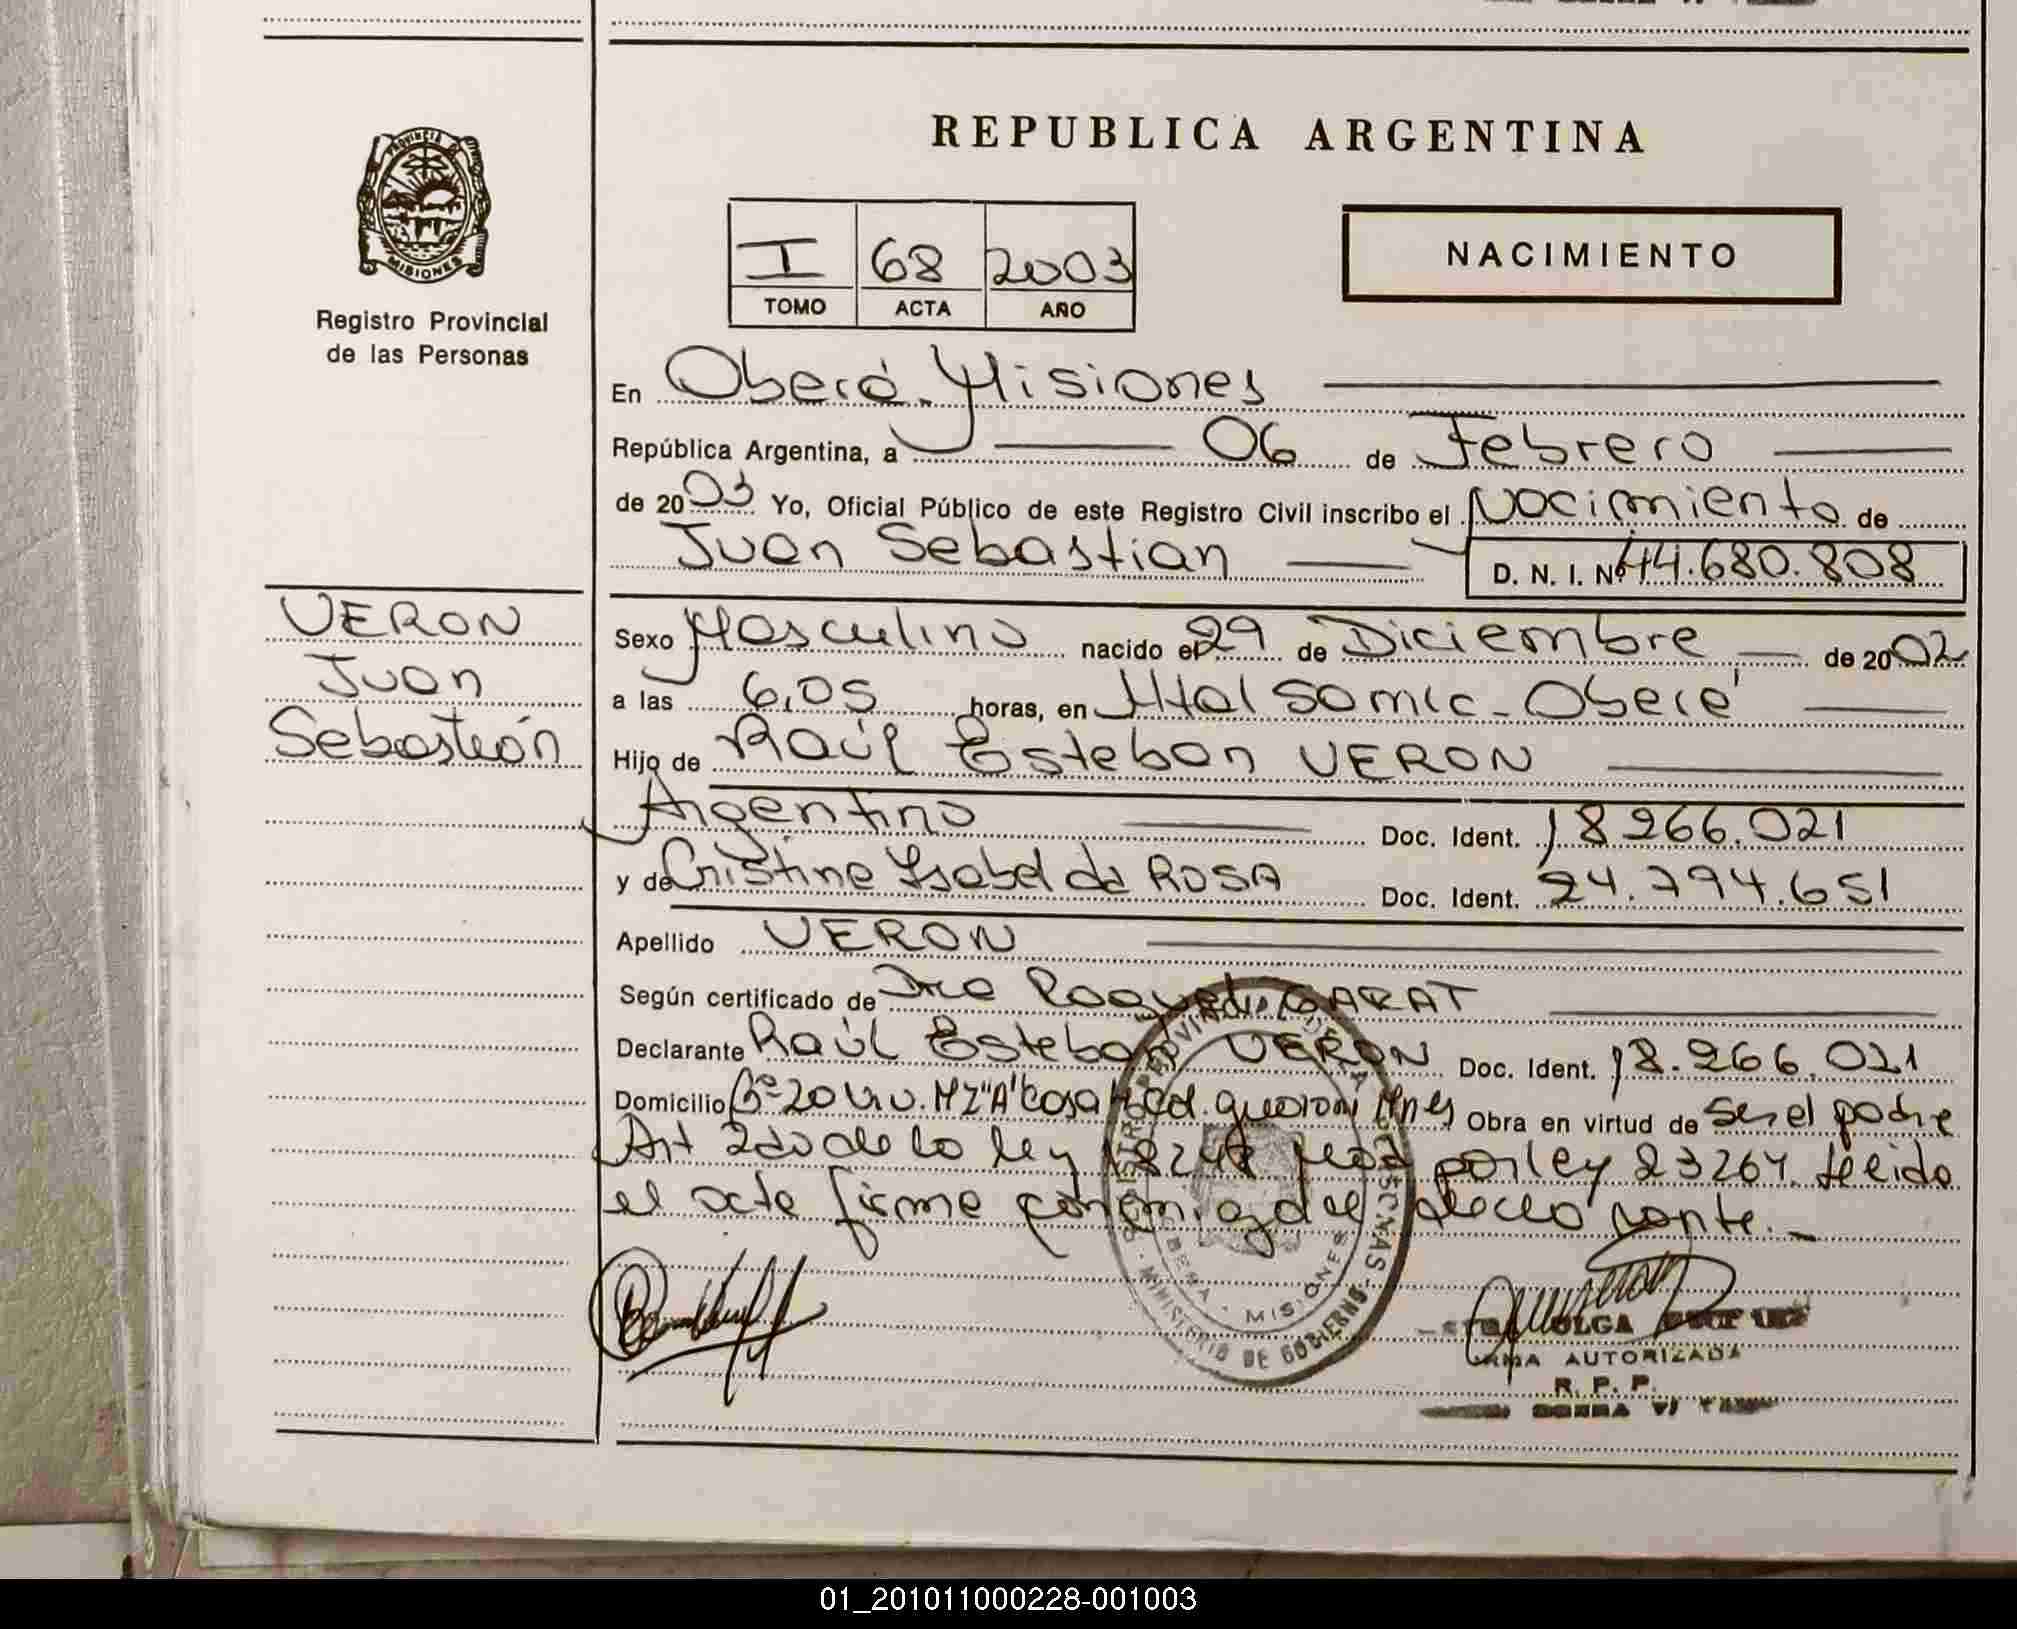 REPUBLICA ARGENTINA
PROVINCIA DE
MISIONES
Registro Provincial
de las Personas
I 68 2003
TOMO ACTA AÑO
NACIMIENTO
En Oberá. Misiones
República Argentina, a 06 de Febrero
de 2003 Yo, Oficial Público de este Registro Civil inscribo el Nacimiento de
Juan Sebastian
D. N. I. Nº 44.680.808
VERON
Juan
Sebastián
Sexo Masculino nacido el 29 de Diciembre de 2002
a las 6,05 horas, en Htal Samic - Oberá
Hijo de Raúl Esteban VERON
Argentino Doc. Ident. 18.266.021
y de Cristina Isabel da ROSA Doc. Ident. 24.794.651
Apellido VERON
Según certificado de Dra GARAT
Declarante Raúl Esteban VERON Doc. Ident. 18.266.021
Domicilio Bº 20 Viv. MZ "A" Casa Mnes Obra en virtud de ser el padre
Art 2do de la ley 18248 mod por ley 23264. Leido
el acta firma conmigo el declarante.
MINISTERIO DE GOBIERNO
MISIONES
OLGA
AUTORIZADA
R. P. P.
01_201011000228-001003